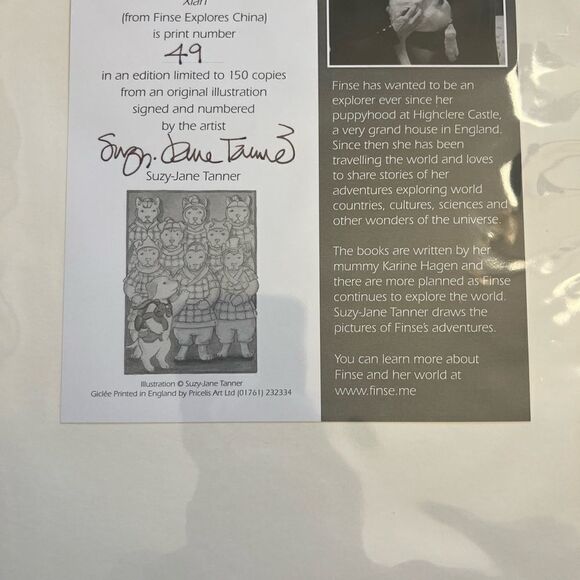 Xian
(from Finse Explores China)
is print number
49
in an edition limited to 150 copies
from an original illustration
signed and numbered
by the artist
Suzy-Jane Tanner
Suzy-Jane Tanner
Illustration © Suzy-Jane Tanner
Giclée Printed in England by Pricelis Art Ltd (01761) 232334
Finse has wanted to be an
explorer ever since her
puppyhood at Highclere Castle,
a very grand house in England.
Since then she has been
travelling the world and loves
to share stories of her
adventures exploring world
countries, cultures, sciences and
other wonders of the universe.
The books are written by her
mummy Karine Hagen and
there are more planned as Finse
continues to explore the world.
Suzy-Jane Tanner draws the
pictures of Finse's adventures.
You can learn more about
Finse and her world at
www.finse.me